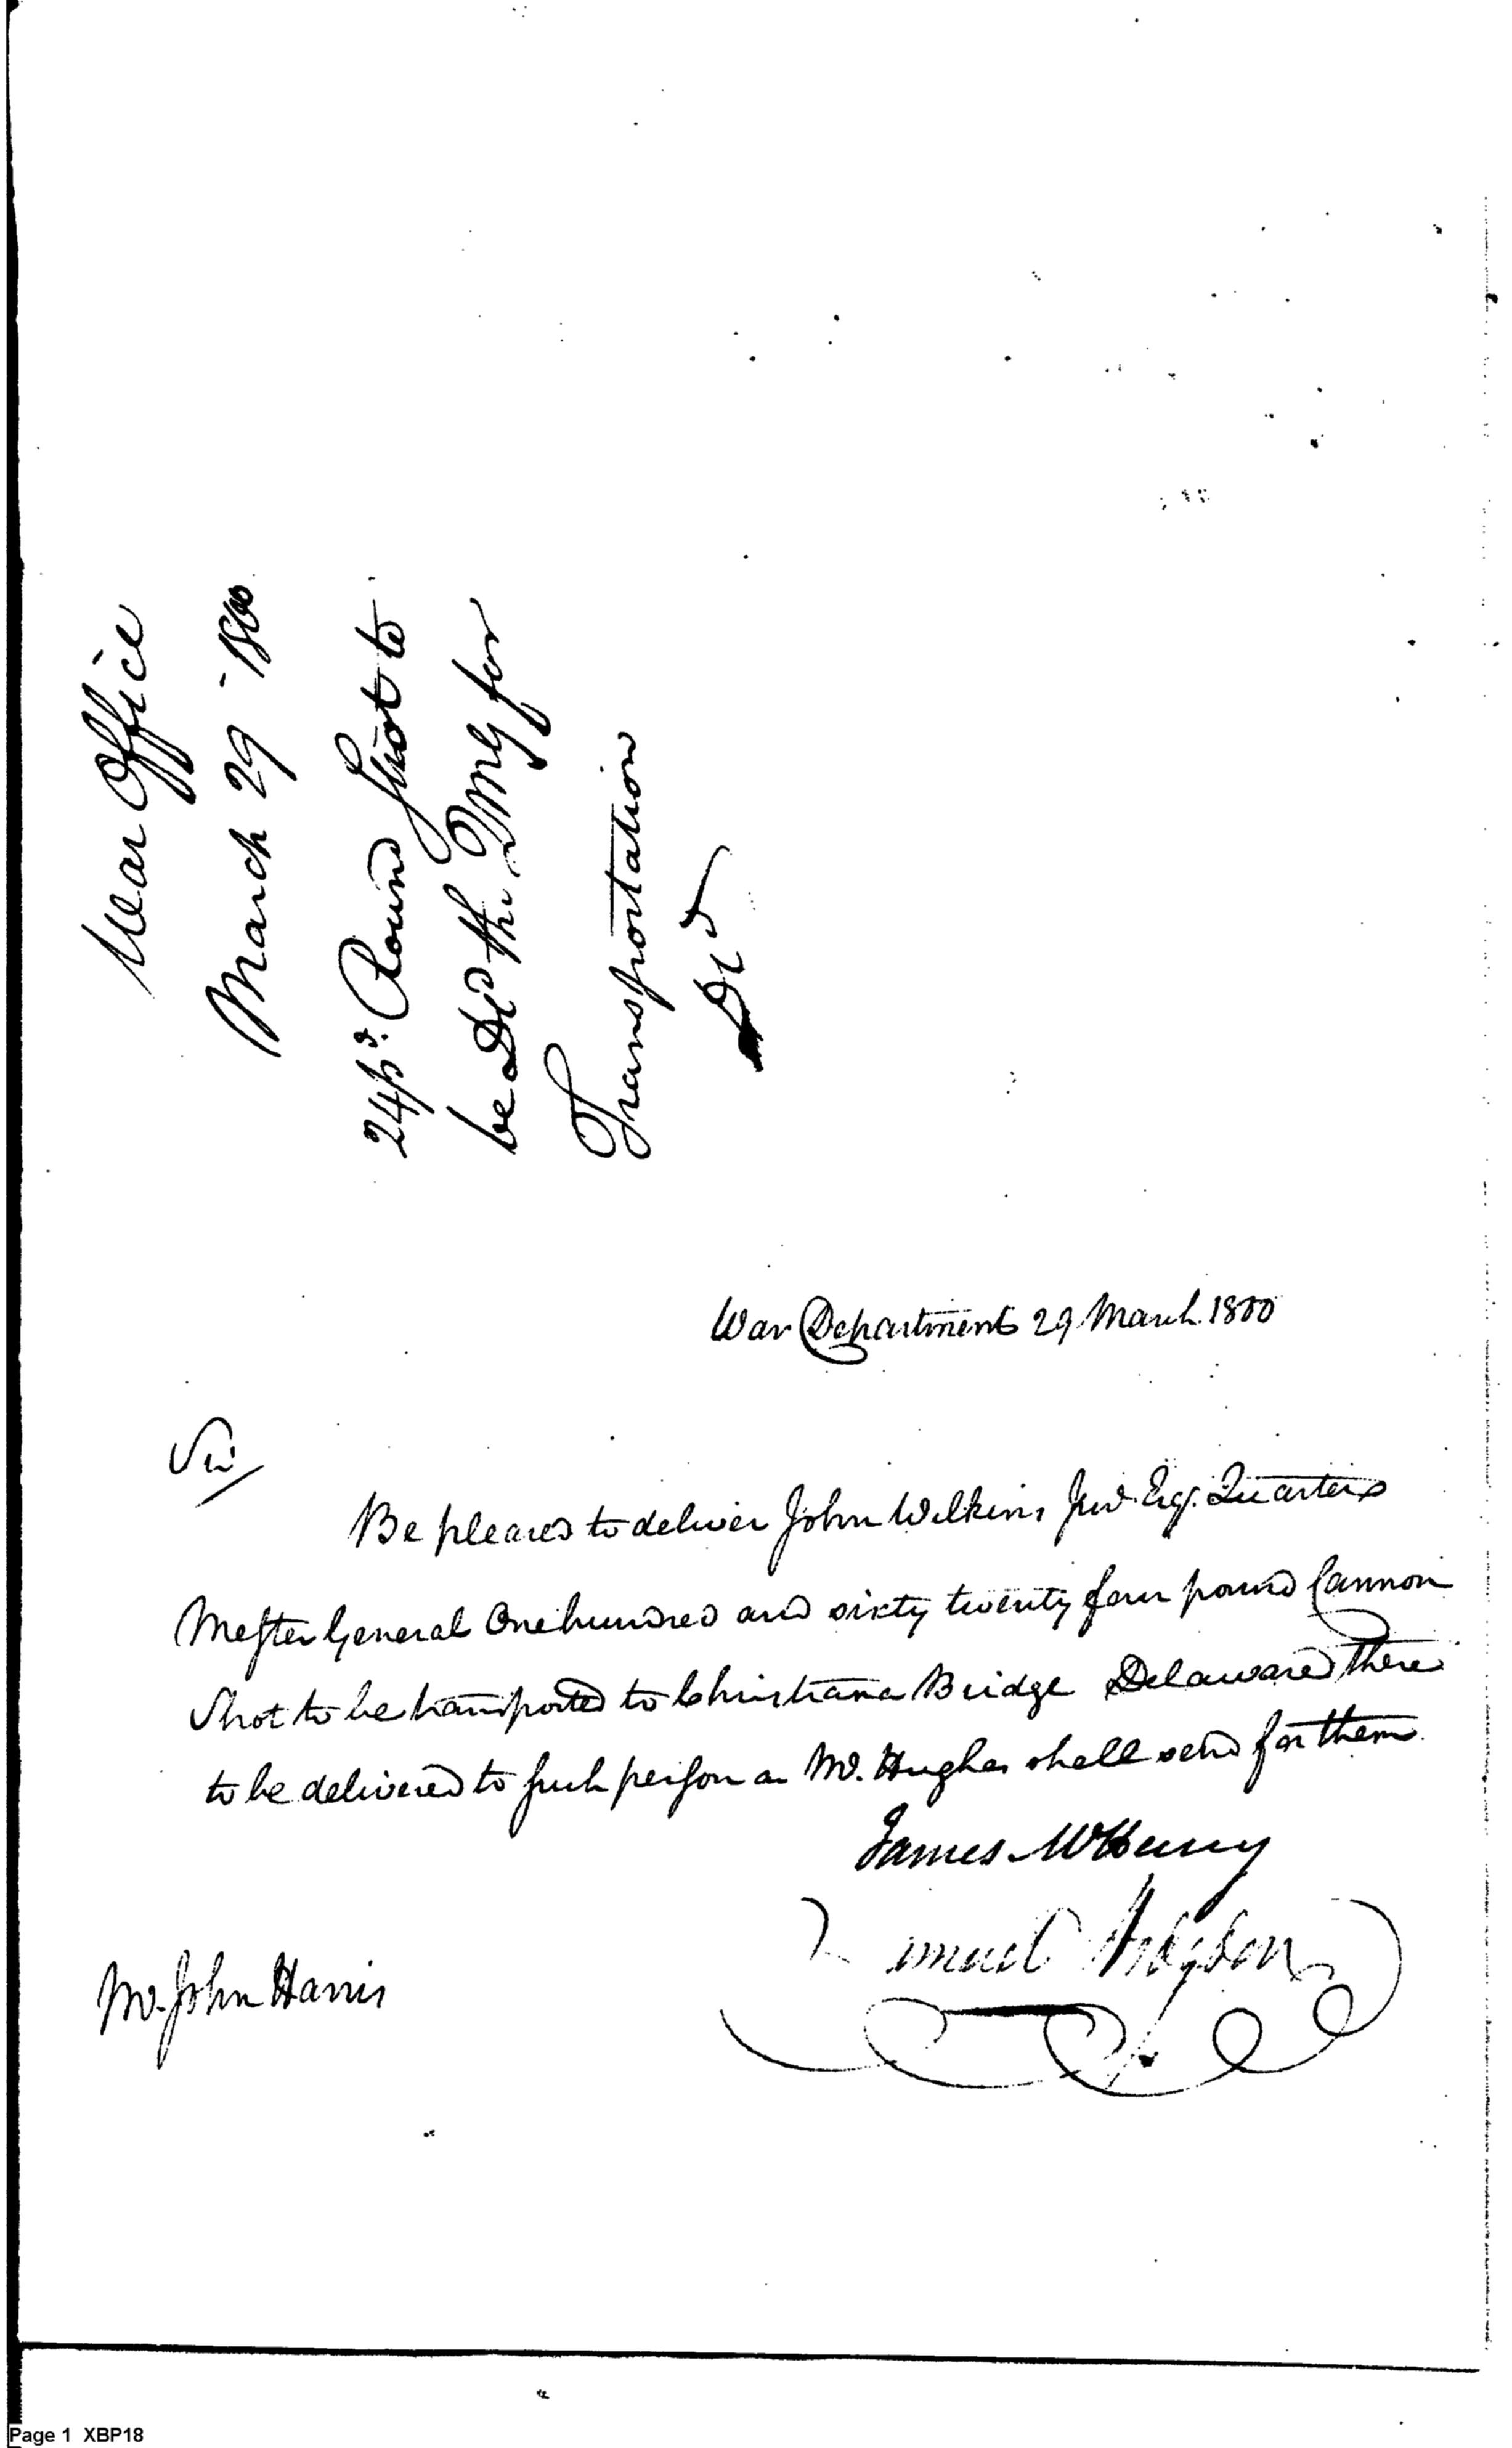 War Office
March 29 - 1800
24 pd. Round Shot to
be Dd the QMG for
Transportation
Dd
War Department 29 March 1800
Sir/
Be pleased to deliver John Wilkins Junr. Esqr. Quarter
Master General One hundred and sixty twenty four pound Cannon
Shot to be transported to Christiana Bridge Delaware there
to be delivered to such person as Mr. Hughes shall send for them
James McHenry
Samuel Hodgdon
Mr. John Harris
Page 1 XBP18